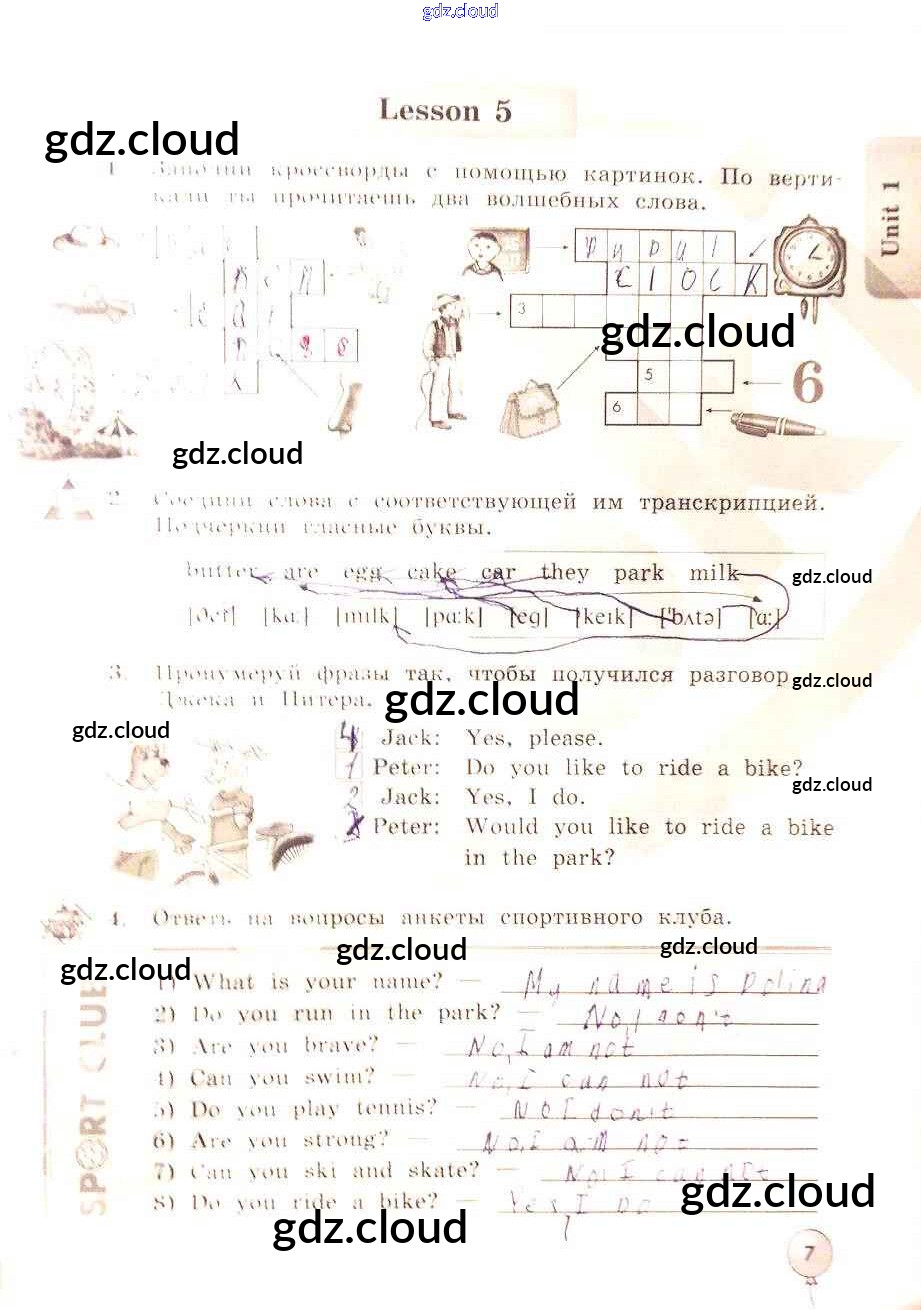 gdz.cloud
Lesson 5
gdz.cloud
Unit 1
1. Заполни кроссворды с помощью картинок. По верти-
кали ты прочитаешь два волшебных слова.
CLOCK
3
gdz.cloud
5
6
6
gdz.cloud
2. Соедини слова с соответствующей им транскрипцией.
Подчеркни гласные буквы.
butter are egg cake car they park milk
gdz.cloud
[ðeɪ] [kɑ:] [mɪlk] [pɑ:k] [eg] [keɪk] ['bʌtə] [ɑ:]
3. Пронумеруй фразы так, чтобы получился разговор
gdz.cloud
Джека и Питера.
gdz.cloud
gdz.cloud
4 Jack: Yes, please.
1 Peter: Do you like to ride a bike?
gdz.cloud
2 Jack: Yes, I do.
Peter: Would you like to ride a bike
in the park?
4. Ответь на вопросы анкеты спортивного клуба.
gdz.cloud
gdz.cloud
gdz.cloud
SPORT CLUB
1) What is your name? — My name is Polina
2) Do you run in the park? — No, I don't
3) Are you brave? — No, I am not
4) Can you swim? — No, I can not
5) Do you play tennis? — No I don't
6) Are you strong? — No, I am not
7) Can you ski and skate? — No, I can not
gdz.cloud
8) Do you ride a bike? — Yes, I do
gdz.cloud
7